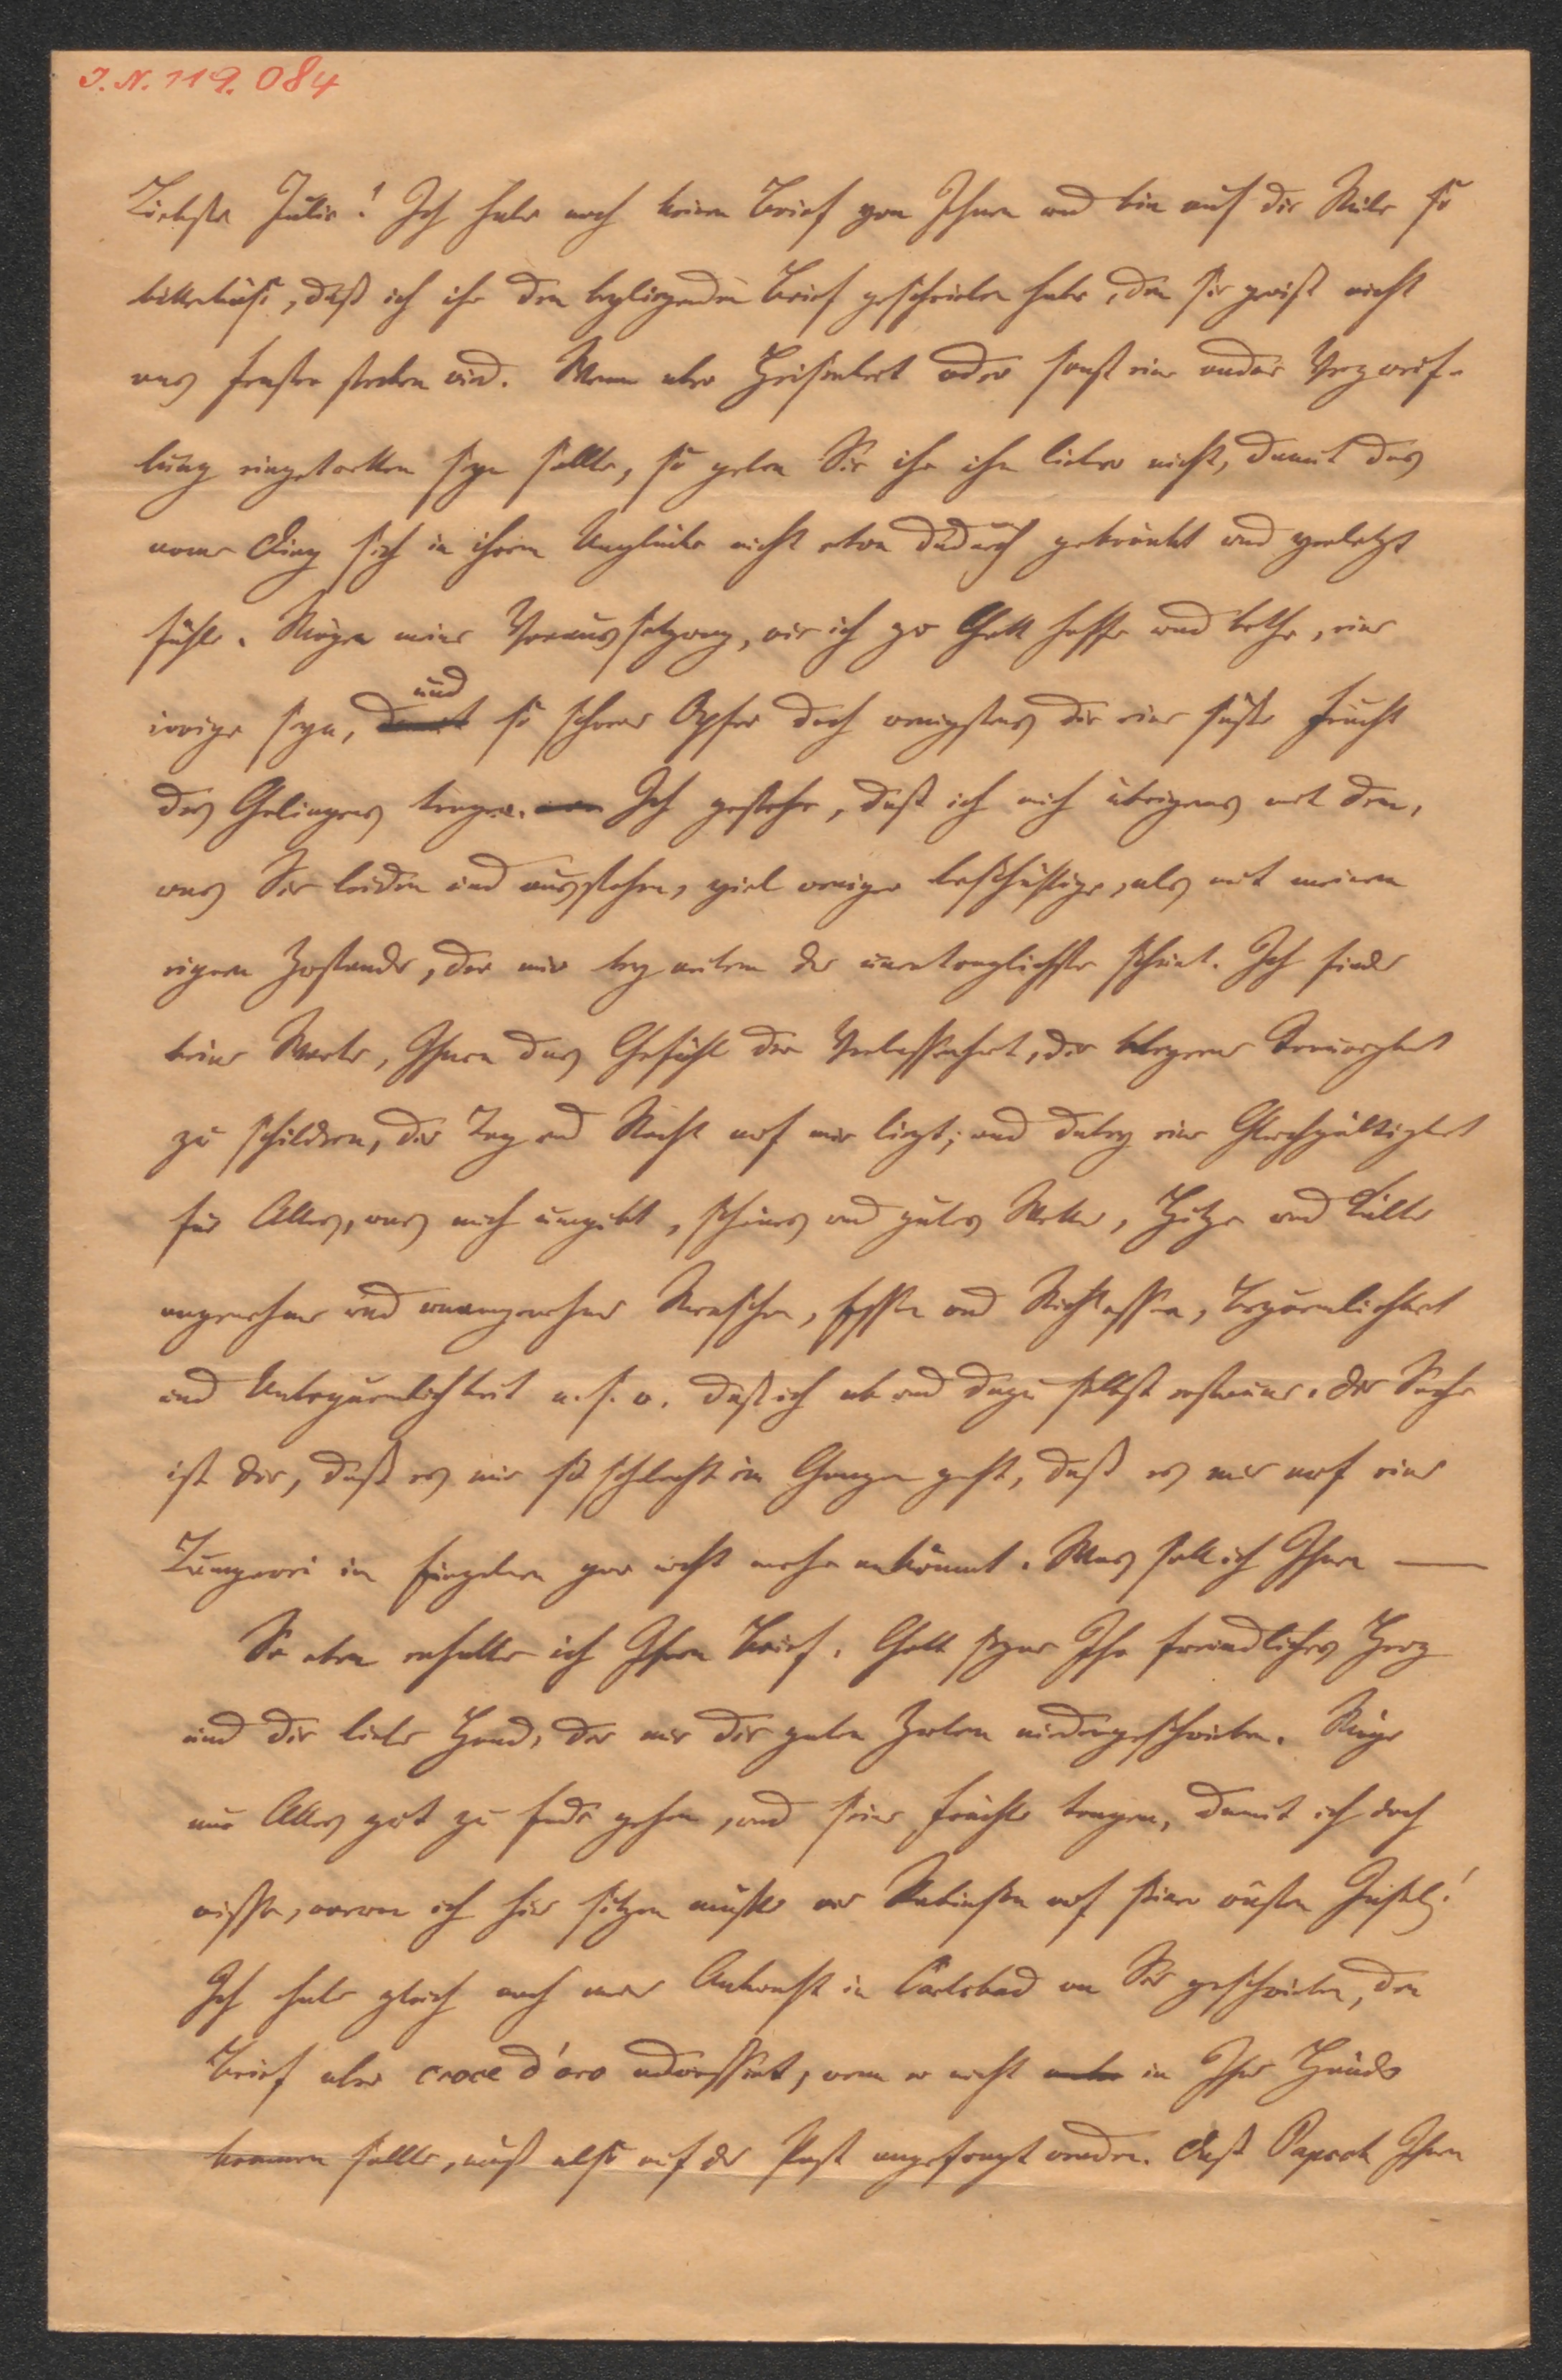 I. N. 119.084
Liebste Julie! Ich habe noch keinen Brief von Ihnen und bin auf die Mile so
bitterbös, daß ich ihr den beyliegenden Brief geschrieben habe, den sie gewiß nicht
ans Fenster stecken wird. Wenn aber Heiserkeit oder sonst eine andere Verzweif-
lung eingetretten seyn sollte, so geben Sie ihr ihn lieber nicht, damit das
arme Ding sich in ihrem Unglücke nicht etwa dadurch gekränkt und verletzt
fühle. Mögen meine Voraussetzung, wie ich zu Gott hoffe und bethe, eine
irrige seyn, und so schwere Opfer doch wenigstens die eine süße Frucht
des Gelingens tragen. Ich gestehe, daß ich mich übrigens mit dem,
was Sie leiden und ausstehen, viel weniger beschäftige, als mit meinem
eigenen Zustande, der mir bey weitem der unerträglichste scheint. Ich finde
keine Worte, Ihnen das Gefühl der Verlassenheit, der Traurigkeit
zu schildern, die Tag und Nacht auf mir liegt; und dabey eine Gleichgültigkeit
für Alles, was mich umgibt, schönes und gutes Wetter, Hitze und Kälte
angenehme und unangenehme Menschen, Essen und Nichtessen, Bequemlichkeit
und Unbequemlichkeit u. s. w. daß ich ab und dazu selbst erstaune. Die Sache
ist die, daß es mir so schlecht im Ganzen geht, daß es mir auf eine
Lumperei im Einzelnen gar nicht mehr ankömmt. Was soll ich Ihnen —
So eben erhalte ich Ihren Brief. Gott segne Ihr freundliches Herz
und die liebe Hand, die mir die guten Zeilen niedergeschrieben. Möge
nur Alles gut zu Ende gehen, und seine Früchte tragen, damit ich doch
wisse, warum ich hier sitzen mußte wie Robinson auf seiner wüsten Insel!
Ich habe gleich nach meiner Ankunft in Carlsbad an Sie geschrieben, den
Brief aber croce d'oro adressirt, wenn er nicht in Ihre Hände
kommen sollte, muß also auf der Post angefragt werden. Daß Ihnen